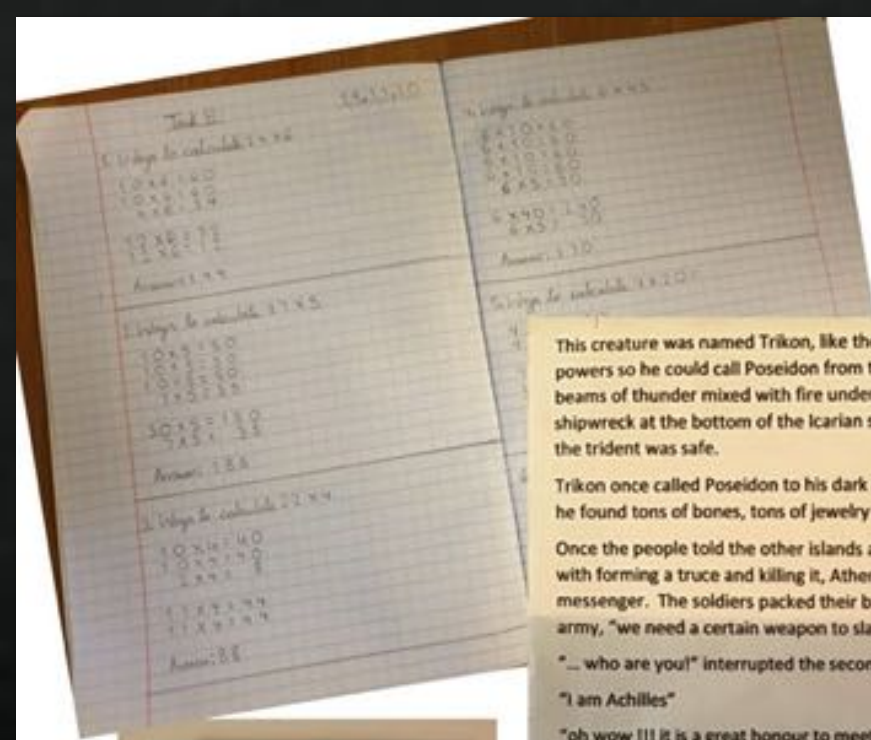 Task B
1. Ways to calculate 24 x 6
10 x 6 = 60
10 x 6 = 60
4 x 6 = 24
12 x 6 = 72
12 x 6 = 72
Answer: 144
2. Ways to calculate 37 x 5
10 x 5 = 50
10 x 5 = 50
10 x 5 = 50
7 x 5 = 35
30 x 5 = 150
7 x 5 = 35
Answer: 185
3. Ways to calculate 22 x 4
10 x 4 = 40
10 x 4 = 40
2 x 4 = 8
11 x 4 = 44
11 x 4 = 44
Answer: 88
4. Ways to calculate 6 x 45
6 x 10 = 60
6 x 10 = 60
6 x 10 = 60
6 x 10 = 60
6 x 5 = 30
6 x 40 = 240
6 x 5 = 30
Answer: 270
5. Ways to calculate
This creature was named Trikon, like the
powers so he could call Poseidon from
beams of thunder mixed with fire under
shipwreck at the bottom of the Icarian
the trident was safe.
Trikon once called Poseidon to his dark
he found tons of bones, tons of jewelry
Once the people told the other islands
with forming a truce and killing it, Athe
messenger. The soldiers packed their b
army, "we need a certain weapon to sla
"... who are you!" interrupted the secon
"I am Achilles"
"oh wow !!! it is a great honour to meet